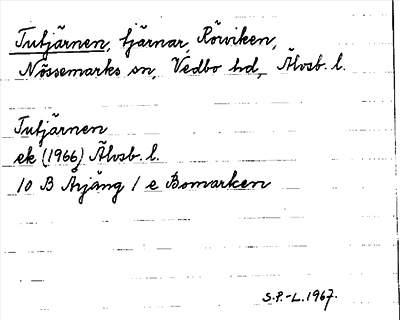 Tutjärnen, tjärnar, Rörviken,
Nössemarks sn, Vedbo hd, Älvsb. l.
Tutjärnen
ek (1966) Älvsb. l.
10 B Årjäng 1 e Bomarken
S.P.-L. 1967.